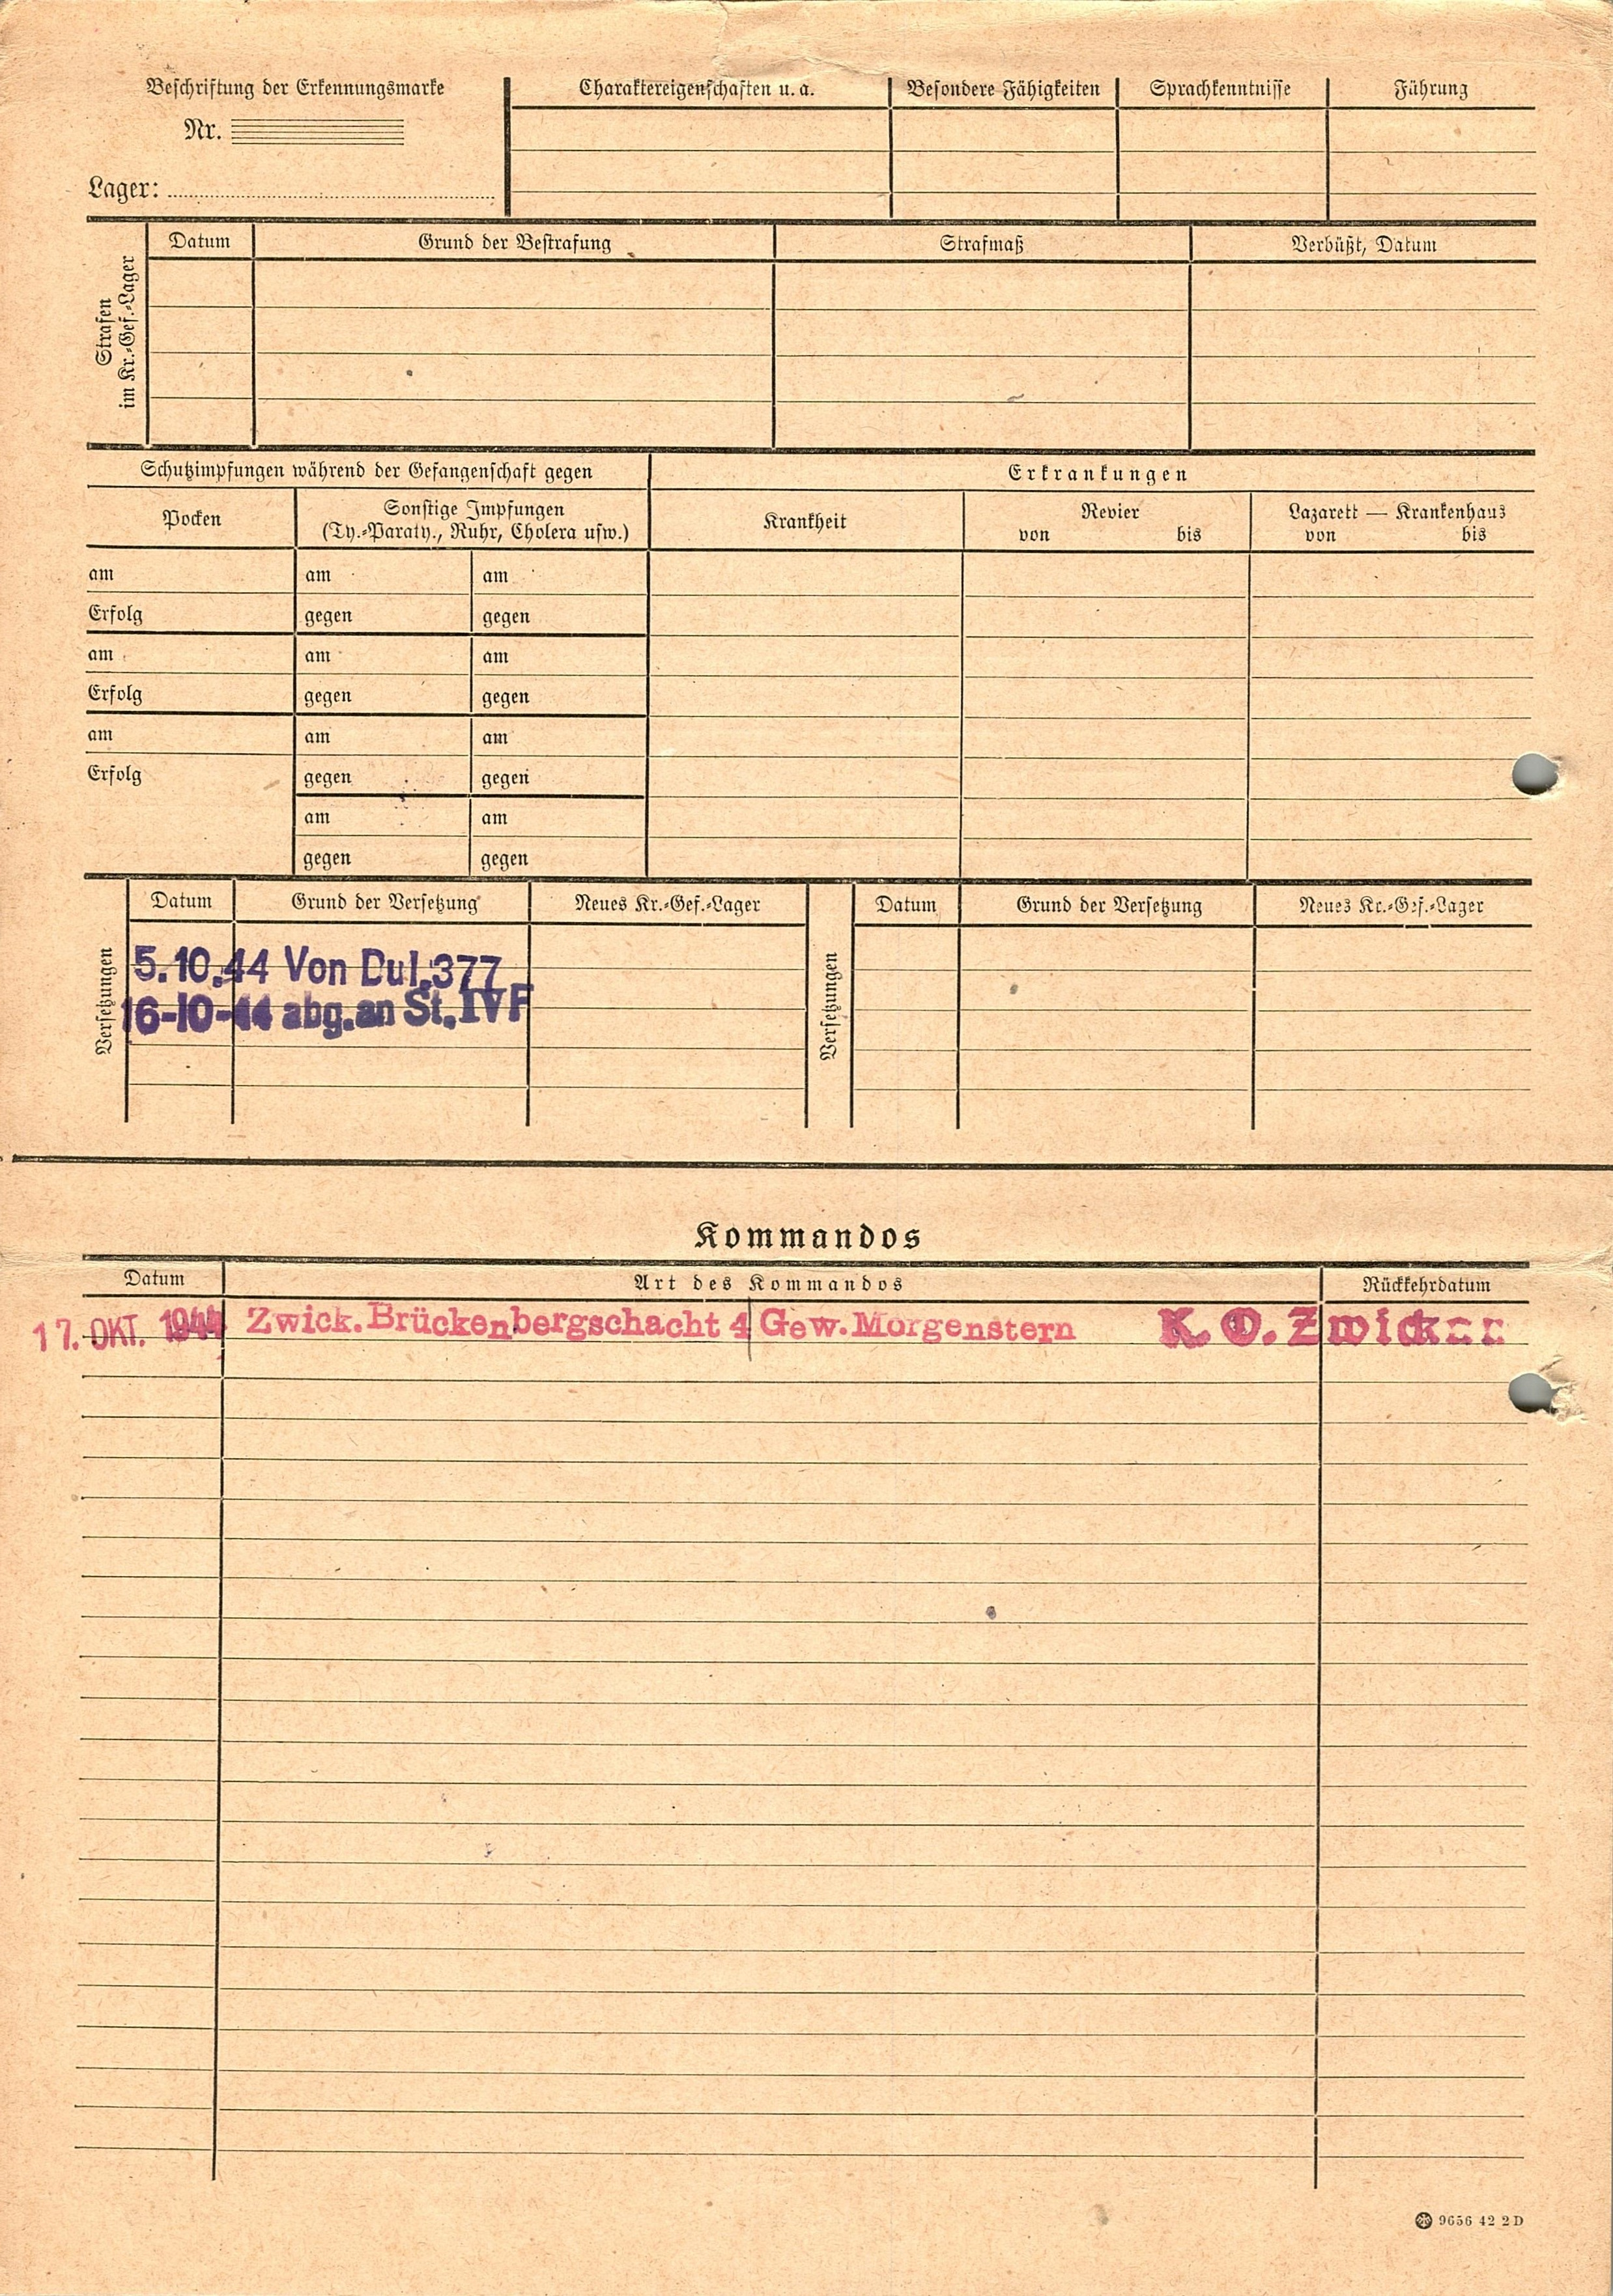 Beschriftung der Erkennungsmarke
Nr.
Lager:
Charaktereigenschaften u. a.
Besondere Fähigkeiten
Sprachkenntnisse
Führung
Strafen
im Kr.-Gef.-Lager
Datum
Grund der Bestrafung
Strafmaß
Verbüßt, Datum
Schutzimpfungen während der Gefangenschaft gegen
Erkrankungen
Pocken
Sonstige Impfungen
(Ty.-Paraty., Ruhr, Cholera usw.)
Krankheit
Revier
von bis
Lazarett — Krankenhaus
von bis
am am am
Erfolg gegen gegen
am am am
Erfolg gegen gegen
am am am
Erfolg gegen gegen
am am
gegen gegen
Versetzungen
Datum Grund der Versetzung Neues Kr.-Gef.-Lager
5.10.44 Von Dul.377
16-10-44 abg.an St.IVF
Versetzungen
Datum Grund der Versetzung Neues Kr.-Gef.-Lager
Kommandos
Datum Art des Kommandos Rückkehrdatum
17. OKT. 1944 Zwick.Brückenbergschacht 4 Gew.Morgenstern K. O. Zwickau
9656 42 2 D